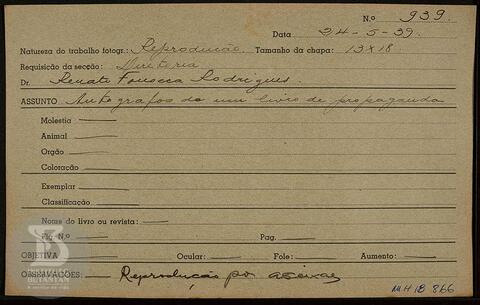 N.o 939.
Data 24-5-39.
Natureza do trabalho fotogr.: Reprodução. Tamanho da chapa: 13x18
Requisição da secção: Diretoria
Dr. Renato Fonseca Rodrigues.
ASSUNTO Autografos de um livro de propaganda
Molestia
Animal
Orgão
Coloração
Exemplar
Classificação
Nome do livro ou revista:
Fig. N.o Pag.
OBJETIVA Ocular: Fole: Aumento:
OBSERVAÇÕES: Reprodução por
MHIB 866
BUTANTAN